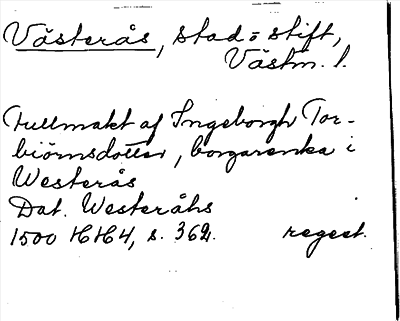 Västerås, stad o stift,
Västm. l.
Fullmakt af Ingeborgh Tor-
biörnsdotter, borgarenka i
Westerås
Dat. Westeråhs
1500 HH4, s. 362. regest.